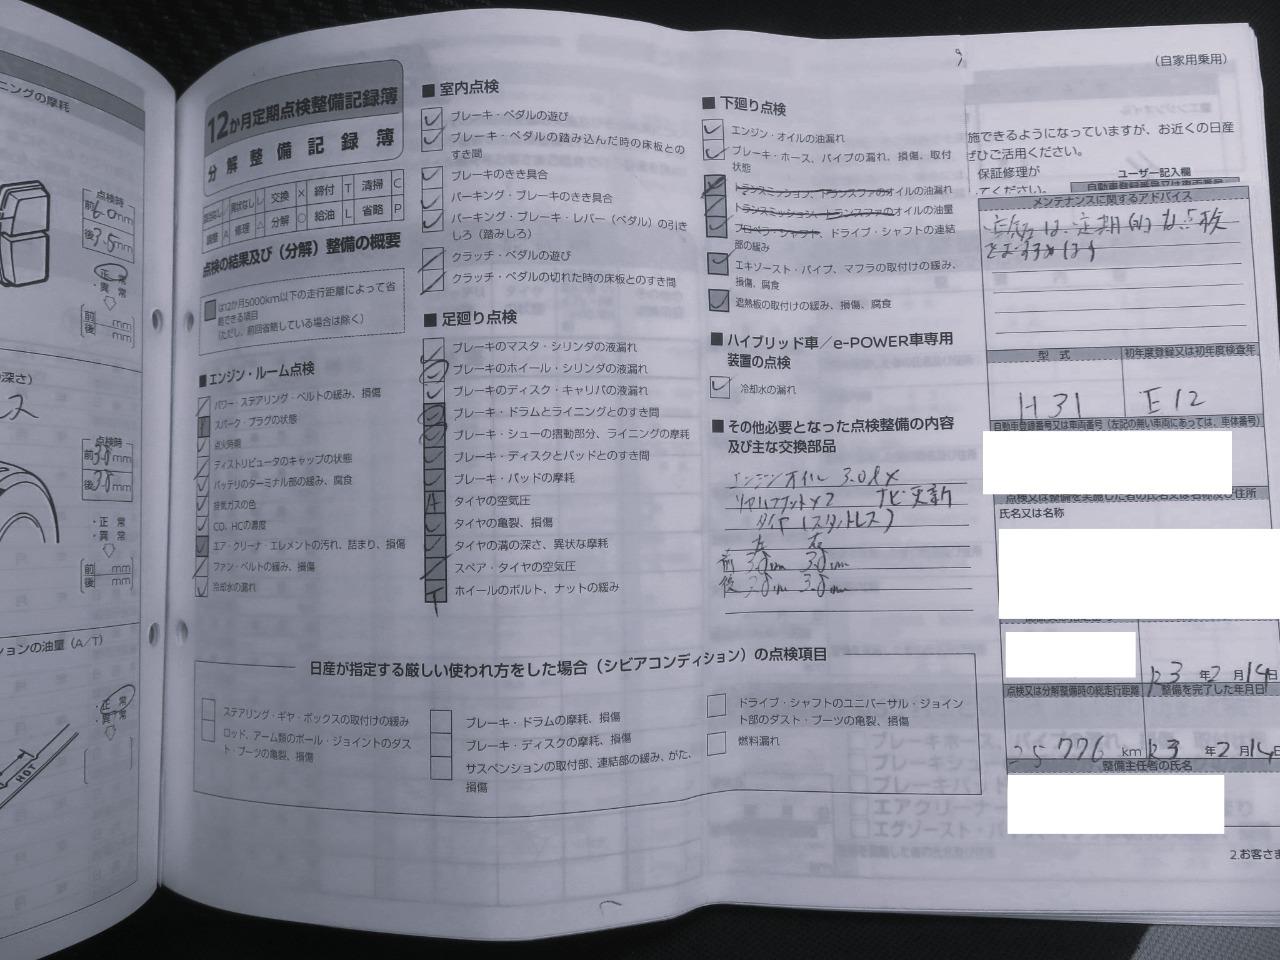 ニングの摩耗
点検時
前 6.0mm
後 3.5mm
正常
・異常
前 mm
後 mm
の深さ)
点検時
前 mm
後 mm
・正常
・異常
前 mm
後 mm
ションの油量(A/T)
正常
・異常
HOT
12か月定期点検整備記録簿
分解整備記録簿
交換 × 締付 T 清掃 C
調整 A 修理 △ 分解 ○ 給油 L 省略 P
点検の結果及び(分解)整備の概要
は12か月5000km以下の走行距離によって省
略できる項目
(ただし、前回省略している場合は除く)
■ エンジン・ルーム点検
パワー・ステアリング・ベルトの緩み、損傷
スパーク・プラグの状態
点火時期
ディストリビュータのキャップの状態
バッテリのターミナル部の緩み、腐食
排気ガスの色
CO、HCの濃度
エア・クリーナ・エレメントの汚れ、詰まり、損傷
ファン・ベルトの緩み、損傷
冷却水の漏れ
■ 室内点検
ブレーキ・ペダルの遊び
ブレーキ・ペダルの踏み込んだ時の床板との
すき間
ブレーキのきき具合
パーキング・ブレーキのきき具合
パーキング・ブレーキ・レバー(ペダル)の引き
しろ(踏みしろ)
クラッチ・ペダルの遊び
クラッチ・ペダルの切れた時の床板とのすき間
■ 足廻り点検
ブレーキのマスタ・シリンダの液漏れ
ブレーキのホイール・シリンダの液漏れ
ブレーキのディスク・キャリパの液漏れ
ブレーキ・ドラムとライニングとのすき間
ブレーキ・シューの摺動部分、ライニングの摩耗
ブレーキ・ディスクとパッドとのすき間
ブレーキ・パッドの摩耗
A タイヤの空気圧
タイヤの亀裂、損傷
タイヤの溝の深さ、異状な摩耗
スペア・タイヤの空気圧
T ホイールのボルト、ナットの緩み
■ 下廻り点検
エンジン・オイルの油漏れ
ブレーキ・ホース、パイプの漏れ、損傷、取付
状態
トランスミッション、トランスファのオイルの油漏れ
トランスミッション、トランスファのオイルの油量
プロペラ・シャフト、ドライブ・シャフトの連結
部の緩み
エキゾースト・パイプ、マフラの取付けの緩み、
損傷、腐食
遮熱板の取付けの緩み、損傷、腐食
■ ハイブリッド車/e-POWER車専用
装置の点検
冷却水の漏れ
■ その他必要となった点検整備の内容
及び主な交換部品
エンジンオイル 3.0ℓ×
×2 ナビ更新
タイヤ(スタットレス)
左 右
前
後
日産が指定する厳しい使われ方をした場合(シビアコンディション)の点検項目
ステアリング・ギヤ・ボックスの取付けの緩み
ロッド、アーム類のボール・ジョイントのダス
ト・ブーツの亀裂、損傷
ブレーキ・ドラムの摩耗、損傷
ブレーキ・ディスクの摩耗、損傷
サスペンションの取付部、連結部の緩み、がた、
損傷
ドライブ・シャフトのユニバーサル・ジョイン
ト部のダスト・ブーツの亀裂、損傷
燃料漏れ
(自家用乗用)
施できるようになっていますが、お近くの日産
ぜひご活用ください。
保証修理が
てください。
ユーザー記入欄
メンテナンスに関するアドバイス
は定期的な点検
型式 初年度登録又は初年度検査年
H31 E12
自動車登録番号又は車両番号(左記の無い車両にあっては、車体番号)
氏名又は名称
R3 年 2 月 14 日
点検又は分解整備時の総走行距離 整備を完了した年月日
25776 km R3 年 2 月 14 日
整備主任者の氏名
2.お客さま